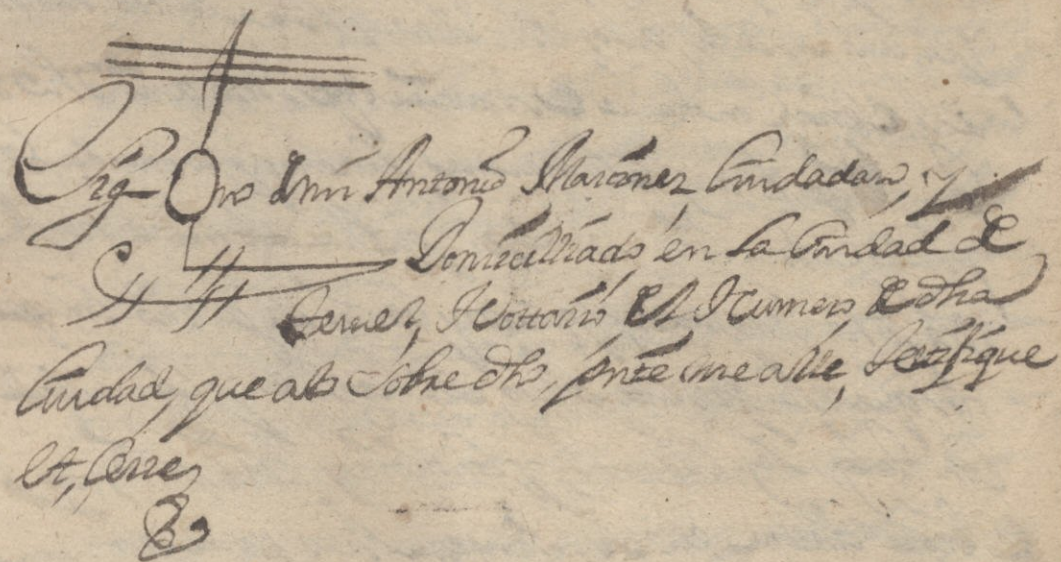 Sig Ono de mi Antonio Martinez Ciudadano, y
Domiciliado en la Ciudad de
Teruel, Nottario del Numero de dha
Ciudad, que alo sobre dho, pnte me alle, Testifique
et, Cerre